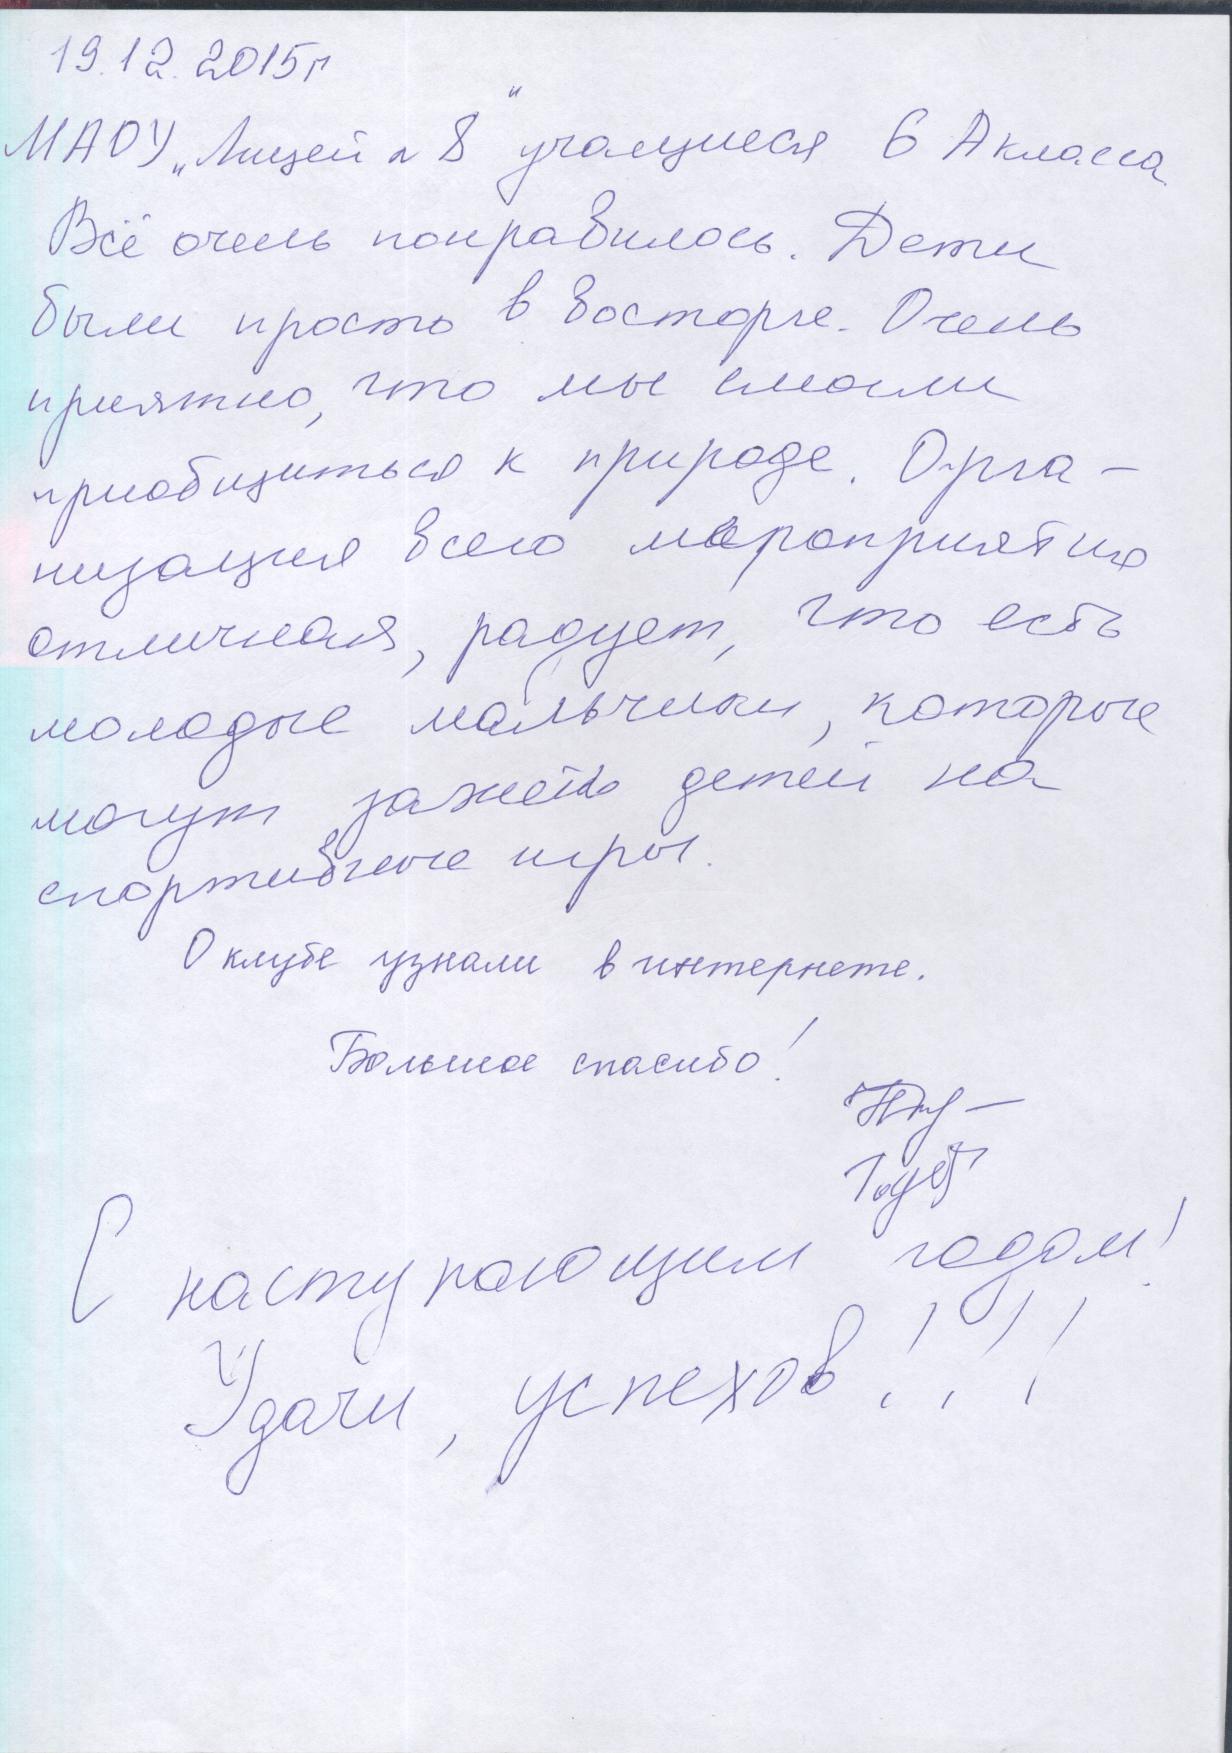 19.12.2015г
МАОУ „Лицей № 8" учащиеся 6 А класса
Всё очень понравилось. Дети
были просто в восторге. Очень
приятно, что мы смогли
приобщиться к природе. Орга-
низация всего мероприятия
отличная, радует, что есть
молодые мальчики, которые
могут зажечь детей на
спортивные игры.
О клубе узнали в интернете.
Большое спасибо!
С наступающим годом!
Удачи, успехов!!!